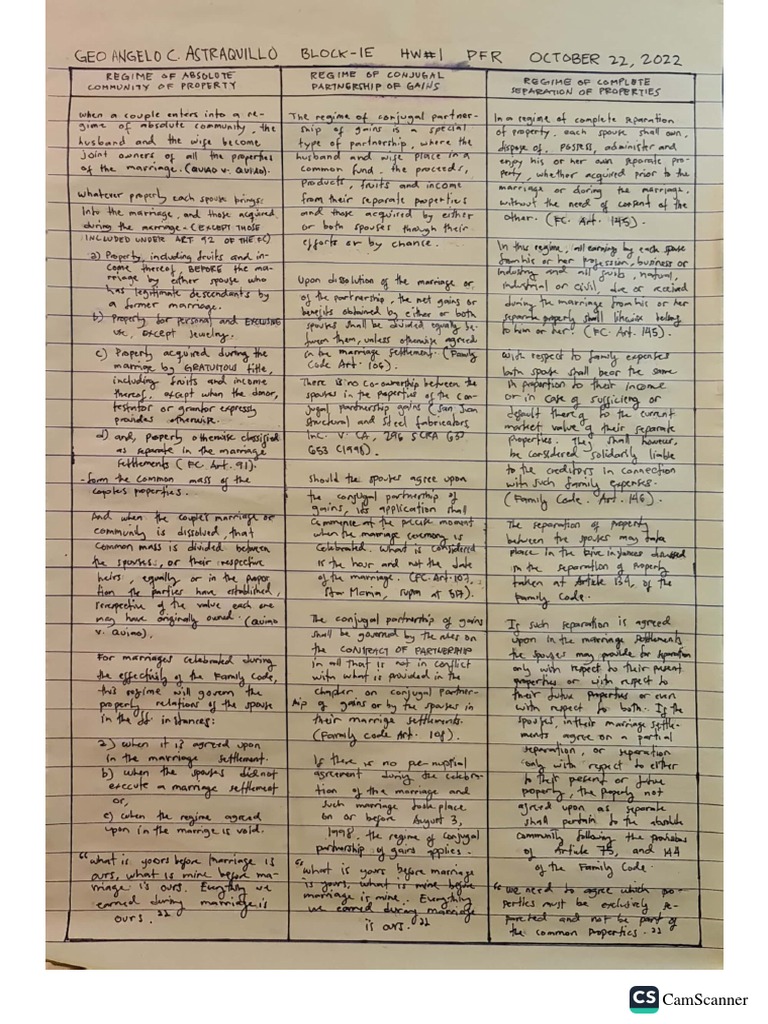 GEO ANGELO C. ASTRAQUILLO BLOCK-1E HW#1 PFR OCTOBER 22, 2022
REGIME OF ABSOLUTE
COMMUNITY OF PROPERTY
when a couple enters into a re-
gime of absolute community, the
husband and the wife become
joint owners of all the properties
of the marriage. (QUIAO v. QUIAO).
whatever property each spouse brings
into the marriage, and those acquired
during the marriage - (EXCEPT THOSE
INCLUDED UNDER ART 92 OF THE FC)
a) Property, including fruits and in-
come thereof, BEFORE the ma-
rriage by either spouse who
has legitimate descendants by
a former marriage.
b) Property for personal and EXCLUSIVE
use, EXCEPT jewelry.
c) Property acquired during the
marriage by GRATUITOUS title,
including fruits and income
thereof, except when the donor,
testator or grantor expressly
provides otherwise.
d) and, property otherwise classified
as separate in the marriage
settlements (FC. Art. 91).
- form the common mass of the
couples properties.
And when the couple's marriage or
community is dissolved, that
common mass is divided between
the spouses, or their respective
heirs, equally or in the propor
tion the parties have established,
irrespective of the value each one
may have originally owned. (Quiao
v. Quiao).
For marriages celebrated during
the effectivity of the Family Code,
this regime will govern the
property relations of the spouse
in the ff. instances:
a) when it is agreed upon
in the marriage settlement.
b) when the spouses did not
execute a marriage settlement
or,
c) when the regime agreed
upon in the marrige is void.
"what is yours before marriage is
ours, what is mine before ma-
rriage is ours. Everything we
earned during marriage is
ours."
REGIME OF CONJUGAL
PARTNERSHIP OF GAINS
The regime of conjugal partner-
ship of gains is a special
type of partnership, where the
husband and wife place in a
common fund. the proceeds,
products, fruits and income
from their separate properties
and those acquired by either
or both spouses through their
efforts or by chance.
Upon dissolution of the marriage or
of the partnership, the net gains or
benefits obtained by either or both
spouses shall be divided equally be-
tween them, unless otherwise agreed
in the marriage settlement. (Family
Code Art. 106).
There is no co-ownership between the
spouses in the properties of the con-
jugal partnership gains (San Juan
Structural and Steel Fabricators
Inc. v. CA, 296 SCRA 630
653 (1998).
should the spouses agree upon
the conjugal partnership of
gains, its application shall
commence at the precise moment
when the marriage ceremony is
celebrated. What is considered
is the hour and not the date
of the marriage. (FC. Art. 107,
Sta Maria, supra at 517).
The conjugal partnership of gains
shall be governed by the rules on
the CONTRACT OF PARTNERSHIP
in all that is not in conflict
with what is provided in the
chapter on conjugal partner-
ship of gains or by the spouses in
their marriage settlements.
(Family code Art. 108).
If there is no pre-nuptial
agreement during the celebra-
tion of the marriage and
such marriage took place
on or before August 3,
1998. the regime of conjugal
partnership of gains applies.
"what is yours before marriage
is yours, what is mine before
marriage is mine. Everything
we earned during marriage
is ours."
REGIME OF COMPLETE
SEPARATION OF PROPERTIES
In a regime of complete separation
of property, each spouse shall own,
dispose of, possess, administer and
enjoy his or her own separate pro-
perty, whether acquired prior to the
marriage or during the marriage,
without the need of consent of the
other. (FC. Art. 145).
In this regime, all earning by each spouse
from his or her profession, business or
industry and all fruits, natural,
industrial or civil, due or received
during the marriage from his or her
separate property shall likewise belong
to him or her. (FC. Art. 145).
With respect to family expenses
both spouse shall bear the same
in proportion to their income
or in case of sufficiency or
default thereof to the current
market value of their separate
properties. They shall however,
be considered solidarily liable
to the creditors in connection
with such family expenses.
(Family Code. Art. 146).
The separation of property
between the spouses may take
place in the five instances discussed
in the separation of property
taken at Article 134, of the
Family Code.
If such separation is agreed
upon in the marriage settlements
the spouses may provide for separation
only with respect to their present
properties or with respect to
their future properties or even
with respect to both. If the
spouses, in their marriage settle-
ments agree on a partial
separation, or separation
only with respect to either
to their present or future
property, the property not
agreed upon as separate
shall pertain to the absolute
community following the provisions
of Article 75, and 144
of the Family Code.
"we need to agree which pro-
perties must be exclusively se-
parated and not be part of
the common properties."
CS CamScanner